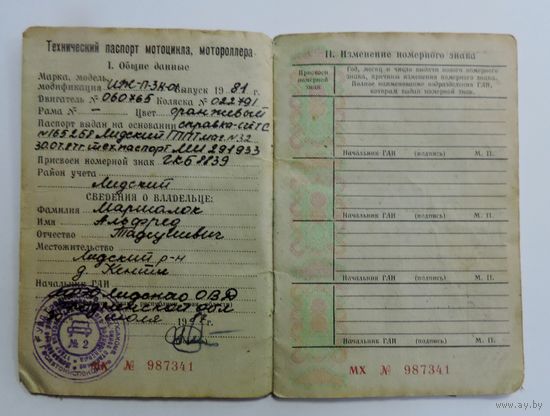 Технический паспорт мотоцикла, мотороллера
I. Общие данные
Марка, модель,
модификация ИЖ-П-3К-01 выпуск 1981 г.
Двигатель № 060765 Коляска № 022791
Рама № — Цвет оранжевый
Паспорт выдан на основании справка-счет С
№ 165258 Лидский маг. № 32
30.07.87г. тех.паспорт МИ 291933
Присвоен номерной знак 8839
Район учета
Лидский
СВЕДЕНИЯ О ВЛАДЕЛЬЦЕ:
Фамилия Маршалок
Имя Альфред
Отчество
Местожительство
Лидский р-н
д.
Начальник ГАИ
Лидского ОВД
обл
19 г.
№ 2
МХ № 987341
II. Изменение номерного знака
Присвоен номерной знак
Год, месяц и число выдачи нового номерного знака, причины изменения номерного знака. Полное наименование подразделения ГАИ, которым выдан номерной знак.
Начальник ГАИ (подпись) М. П.
Начальник ГАИ (подпись) М. П.
Начальник ГАИ (подпись) М. П.
Начальник ГАИ (подпись) М. П.
Начальник ГАИ (подпись) М. П.
МХ № 987341
www.ay.by